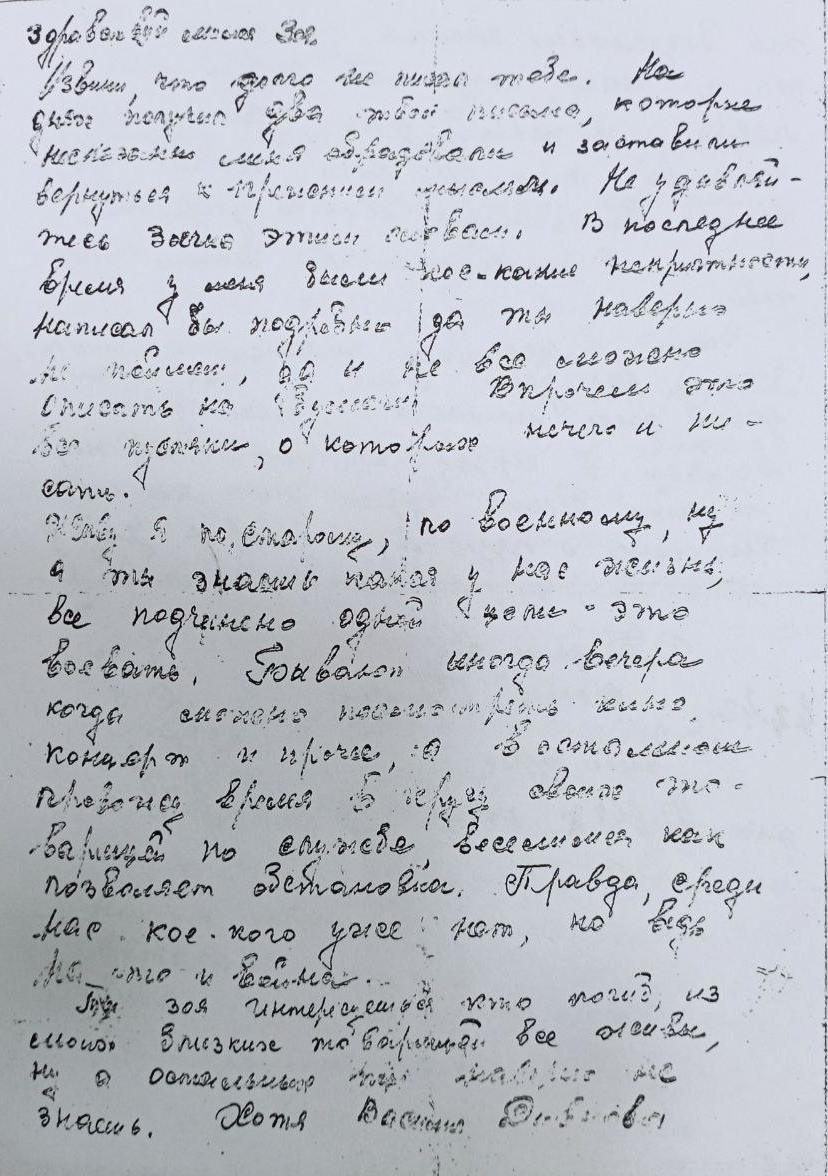 Здравствуй милая Зоя
Извини, что долго не писал тебе. На
днях получил два твои письма, которые
несказанно меня обрадовали и заставили
вернуться к прежним мыслям. Не удивляй-
тесь Зоечка этим словам. В последнее
время у меня были кое-какие неприятности,
написал бы подробно да ты наверно
не поймешь, да и не все можно
описать на бумаги. Впрочем это
все пустяки, о которых нечего и пи-
сать.
Живу я по старому, по военному, ну
а ты знаешь какая у нас жизнь,
все подчинено одной цели - это
воевать. Бывают иногда вечера
когда можно посмотреть кино,
концерт и проче, а в остальном
провожу время в кругу своих то-
варищей по службе, веселимся как
позволяет обстановка. Правда, среди
нас кое-кого уже нет, но ведь
на то и война.
Ты Зоя интересуешься кто погиб, из
моих близких товарищей все живы,
ну а остальных ты наверно не
знаешь. Хотя Василия